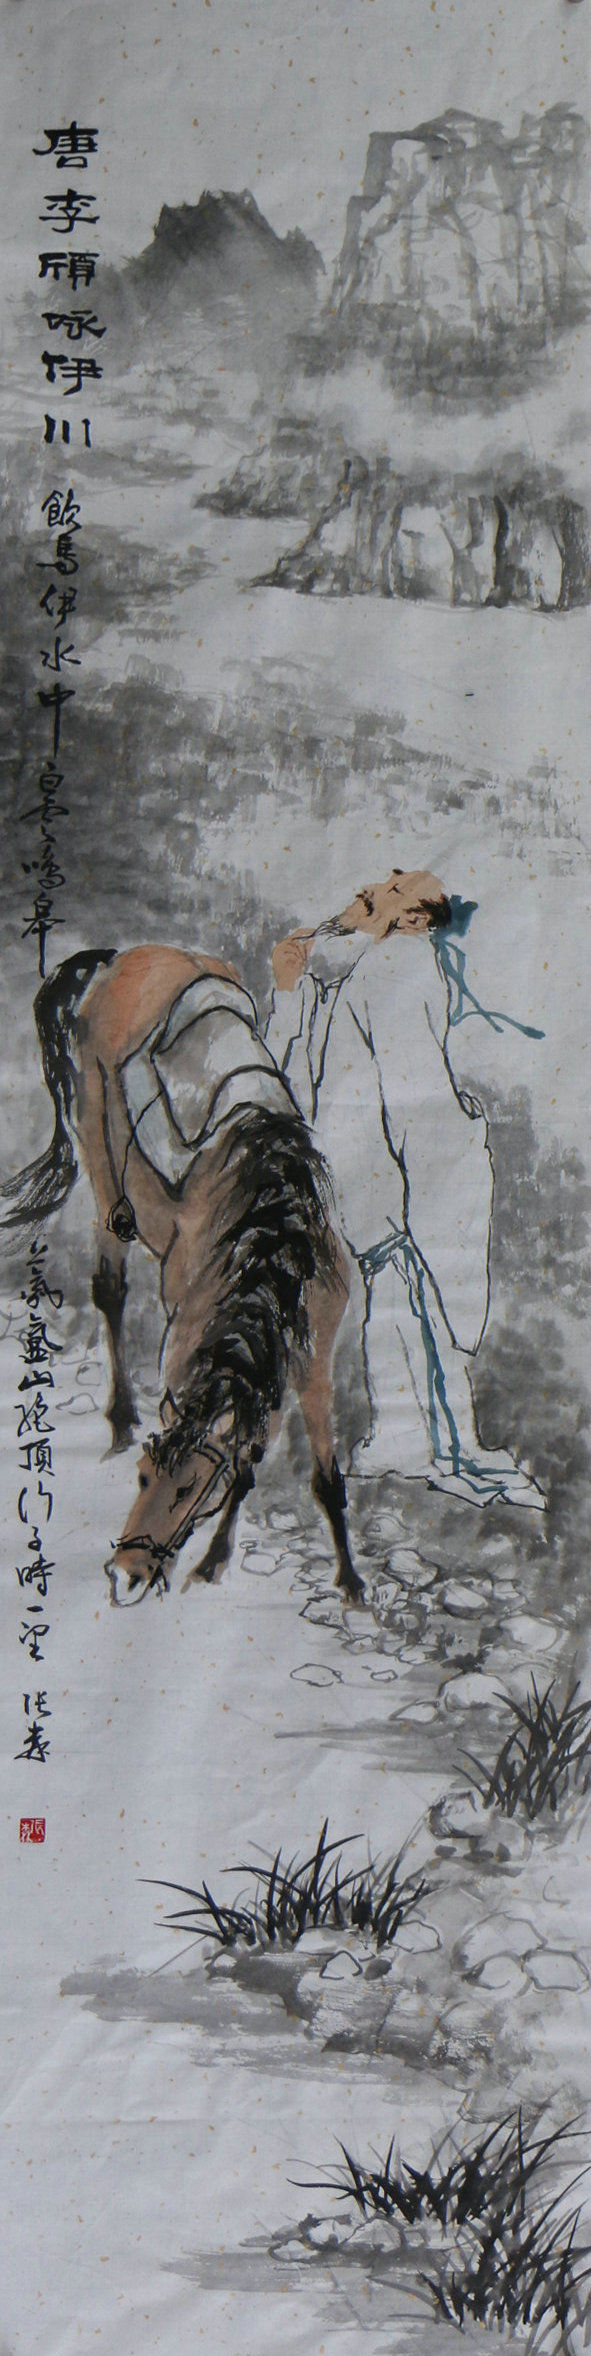 唐李頎咏伊川
飲馬伊水中白雲鳴皋
上氛氳山絶頂行子時一望
張森